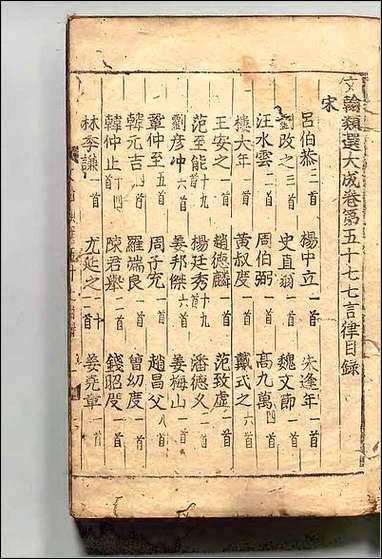 文翰類選大成卷第五十七七言律目錄
宋
呂伯恭二首 楊中立一首 朱逢年一首
劉改之三首 史直翁一首 魏文節一首
汪水雲二首 周伯弼一首 高九萬四首
樓大年一首 黃叔度一首 戴式之六首
王安之一首 趙德麟一首 范致虛一首
范至能十九首 楊廷秀十九首 潘德久一首
劉彥冲六首 晏邦傑一首 姜梅山一首
鞏仲至五首 周子充一首 趙昌父八首
韓元吉四首 羅端良一首 曾幼度一首
韓仲止首 陳君舉二首 錢昭度一首
林季謙一首 尤延之十一首 姜堯章一首